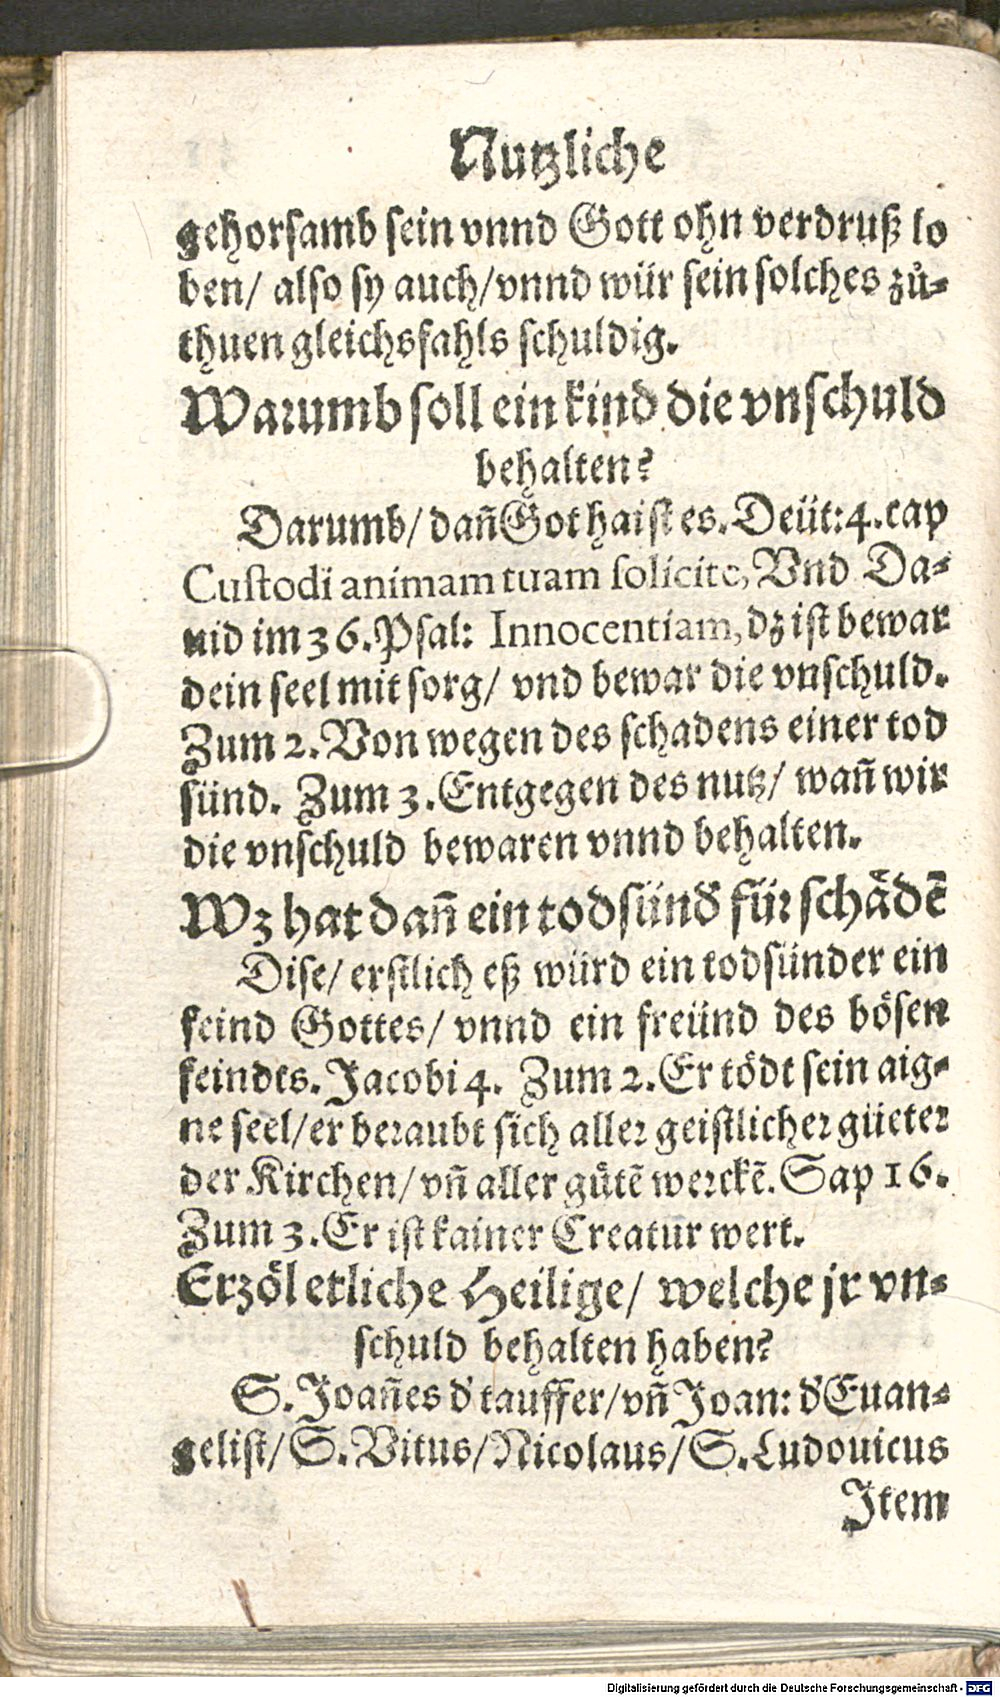 Nutzliche
gehorsamb sein vnnd Gott ohn verdruß lo
ben/ also sy auch/ vnnd wür sein solches zů-
thuen gleichsfahls schuldig.
Warumb soll ein kind die vnschuld
behalten?
Darumb/ dañ Got haist es. Deüt: 4. cap
Custodi animam tuam solicite, Vnd Da-
uid im 36. Psal: Innocentiam, dz ist bewar
dein seel mit sorg/ vnd bewar die vnschuld.
Zum 2. Von wegen des schadens einer tod
sünd. Zum 3. Entgegen des nutz/ wañ wir
die vnschuld bewaren vnnd behalten.
Wz hat dañ ein todsünd für schädẽ
Dise/ erstlich eß würd ein todsünder ein
feind Gottes/ vnnd ein freünd des bösen
feindts. Jacobi 4. Zum 2. Er tödt sein aig-
ne seel/ er beraubt sich aller geistlicher güeter
der Kirchen/ vñ aller gůtẽ werckẽ. Sap 16.
Zum 3. Er ist kainer Creatur wert.
Erzöl etliche Heilige/ welche jr vn-
schuld behalten haben?
S. Joañes d' tauffer/ vñ Joan: d' Euan-
gelist/ S. Vitus/ Nicolaus/ S. Ludouicus
Item
Digitalisierung gefördert durch die Deutsche Forschungsgemeinschaft - DFG